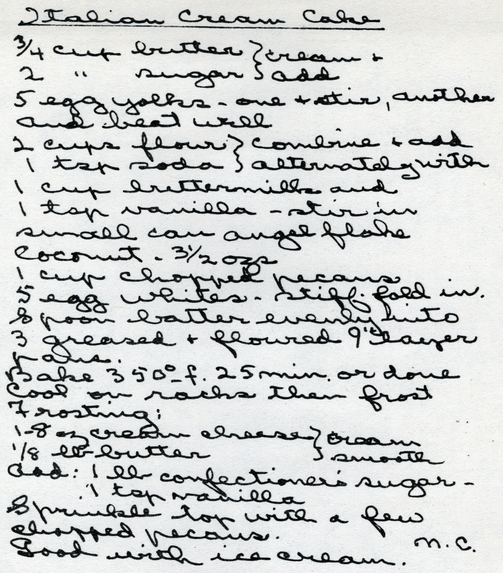 Italian Cream Cake
3/4 cup butter } cream +
2 " sugar } add
5 egg yolks - one + stir, another
and beat well
2 cups flour } combine + add
1 tsp soda } alternately with
1 cup buttermilk and
1 tsp vanilla - stir in
small can angel flake
coconut - 3 1/2 ozs
1 cup chopped pecans
5 egg whites - stiff, fold in.
Spoon batter evenly into
3 greased + floured 9" layer
pans.
Bake 350° f. 25 min. or done
Cool on racks then frost
Frosting:
1-8 oz cream cheese } cream
1/8 lb butter } smooth
add: 1 lb confectioner's sugar -
1 tsp vanilla
Sprinkle top with a few
chopped pecans.
Good with ice cream. N.C.